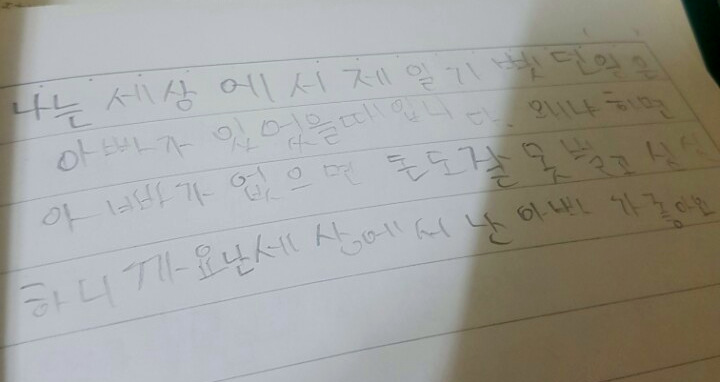 나는 세상 에서 제 일 기 뻣 던일은
아빠가 있 었을때 입니 다. 왜냐 하면
아빠가 없으면 돈도 잘 못 벌고 심심
하니까요 난 세상에서 난 아빠가 좋아요